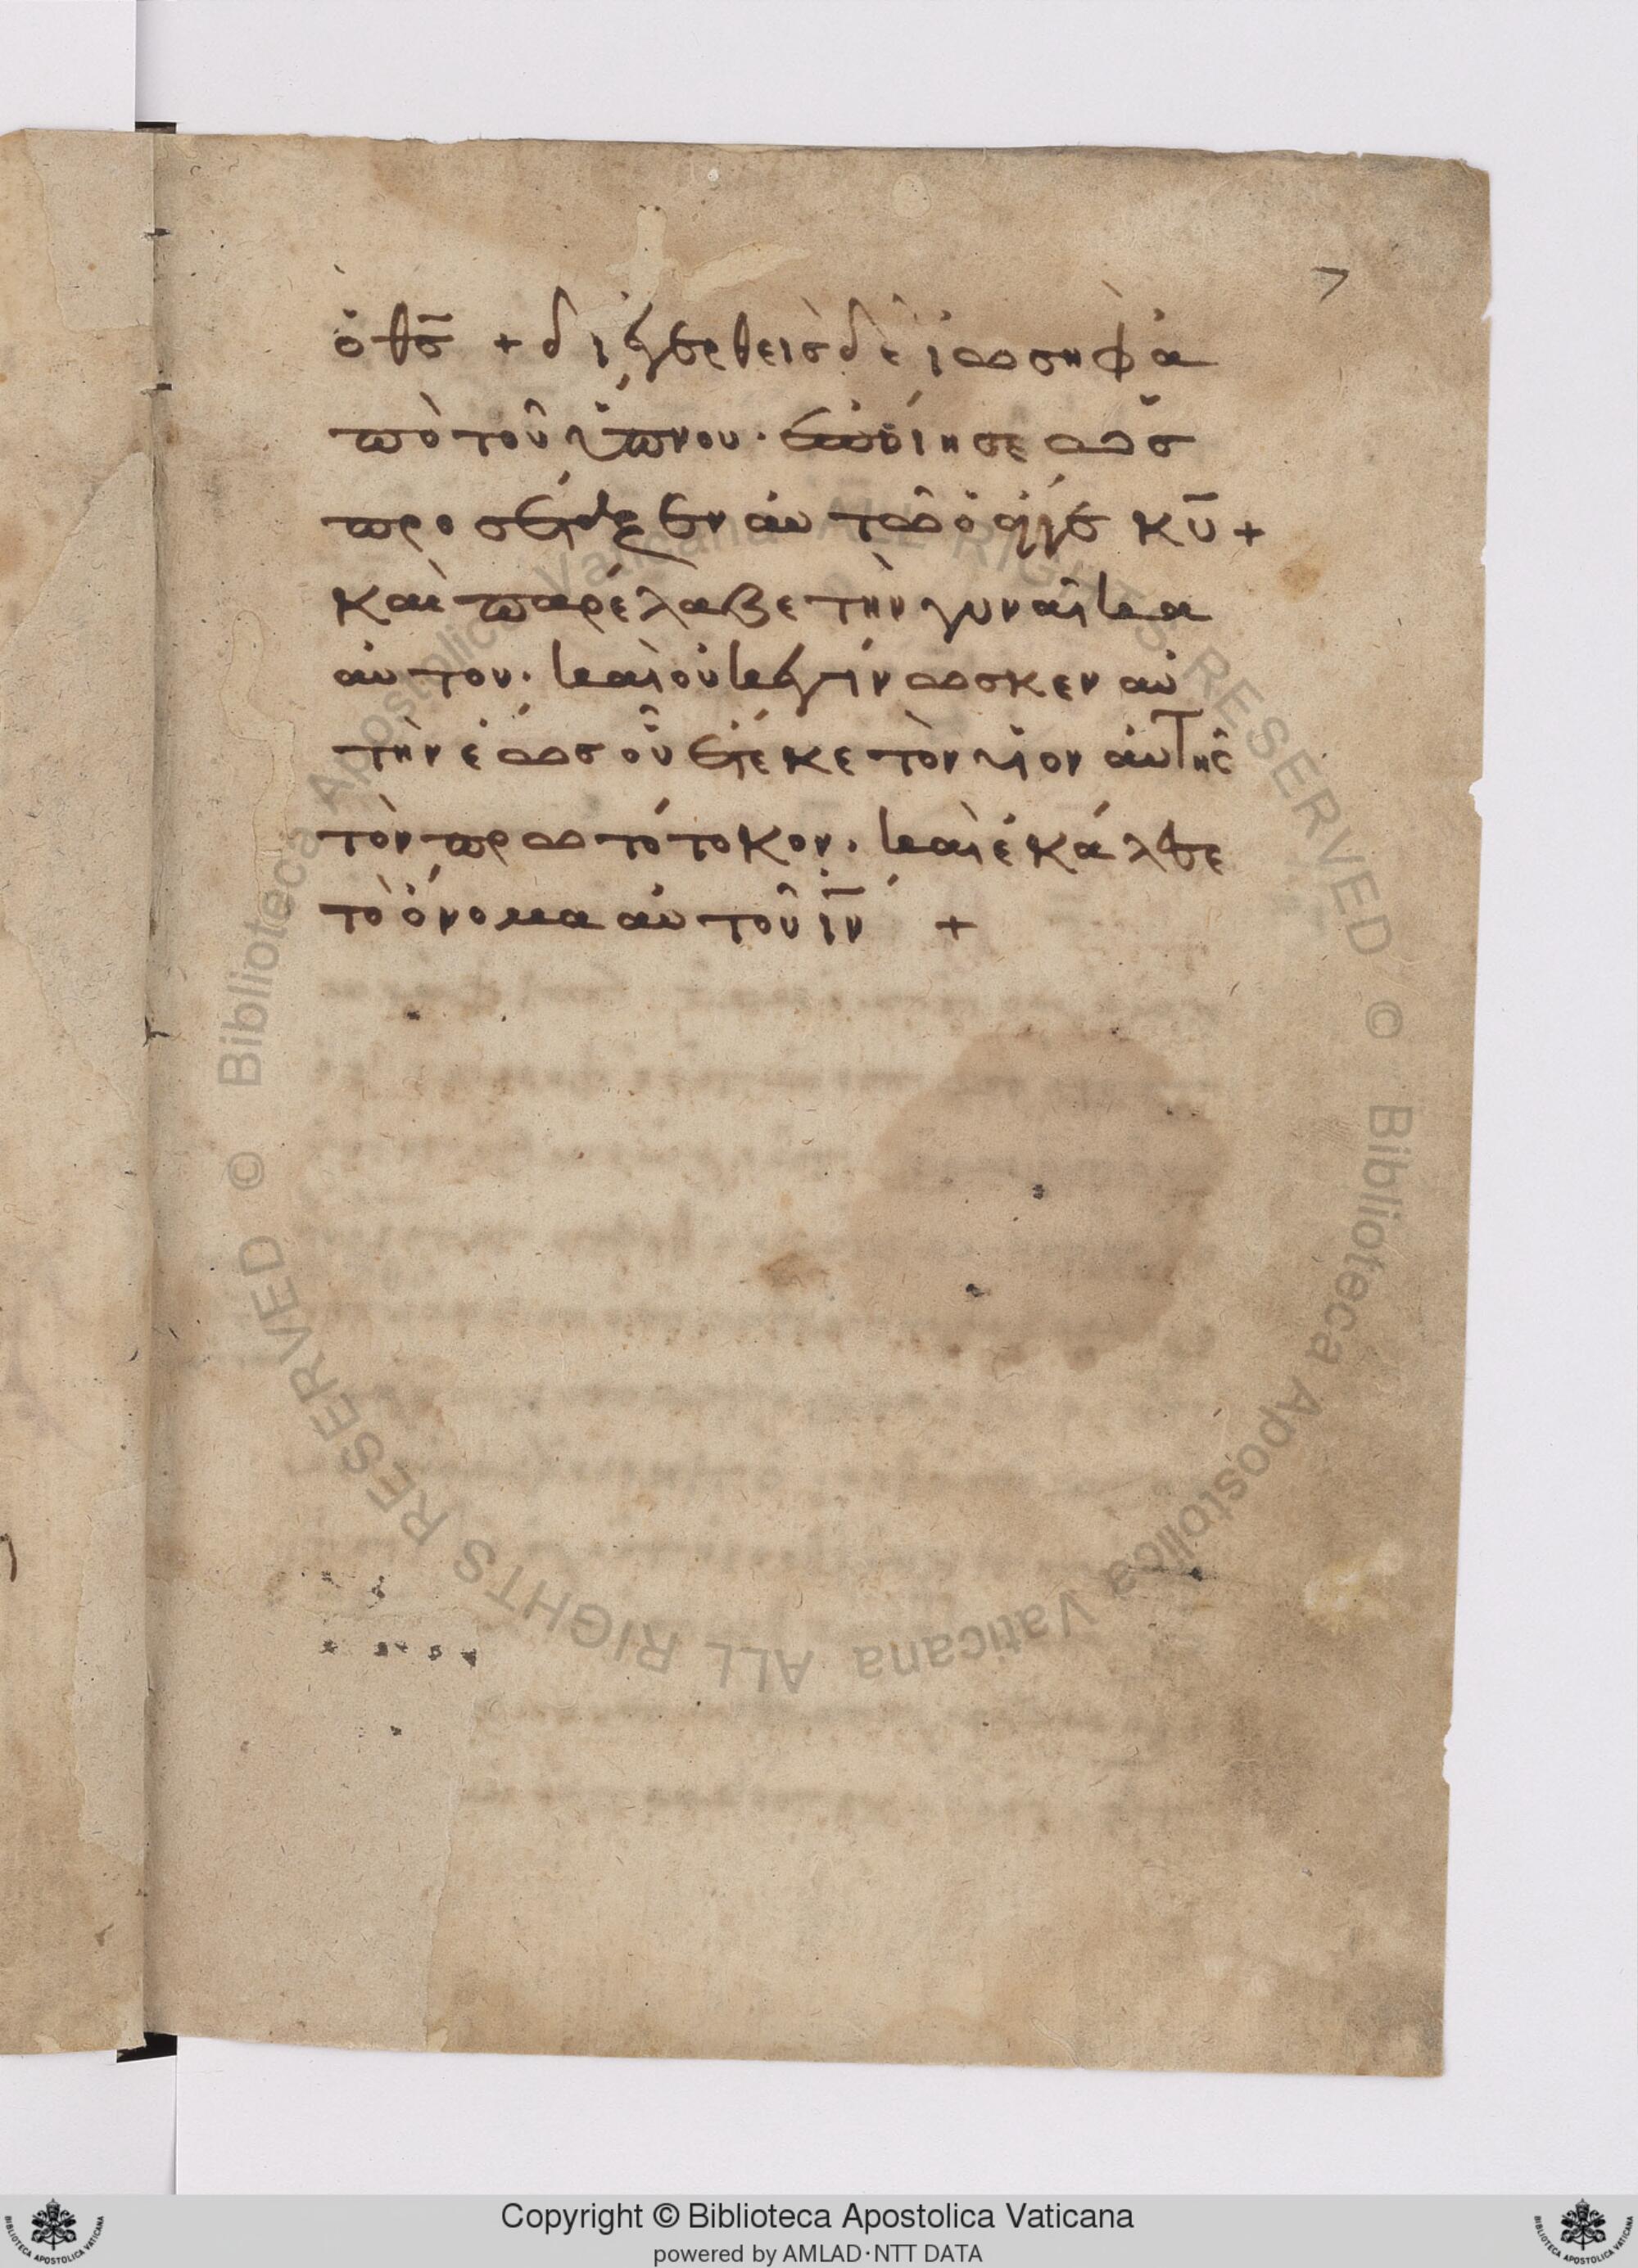 7
ὁ θ̅ς̅ + διεγερθεὶς δὲ ἰωσὴφ ἀ
πὸ τοῦ ὕπνου· ἐποίησεν ὡς
προσέταξεν αὐτῶ ὁ ἄγγελος κ̅υ̅ +
καὶ παρέλαβε τὴν γυναῖκα
αὐτου· καὶ οὐκ ἐγίνωσκεν αὐ
τὴν ἕως οὗ ἔτεκε τὸν υἱὸν αὐτῆς
τὸν πρωτότοκον· καὶ ἐκάλεσε
τὸ ὄνομα αὐτοῦ ι̅ν̅ +
© Biblioteca Apostolica Vaticana ALL RIGHTS RESERVED
© Biblioteca Apostolica Vaticana ALL RIGHTS RESERVED
Copyright © Biblioteca Apostolica Vaticana
powered by AMLAD·NTT DATA